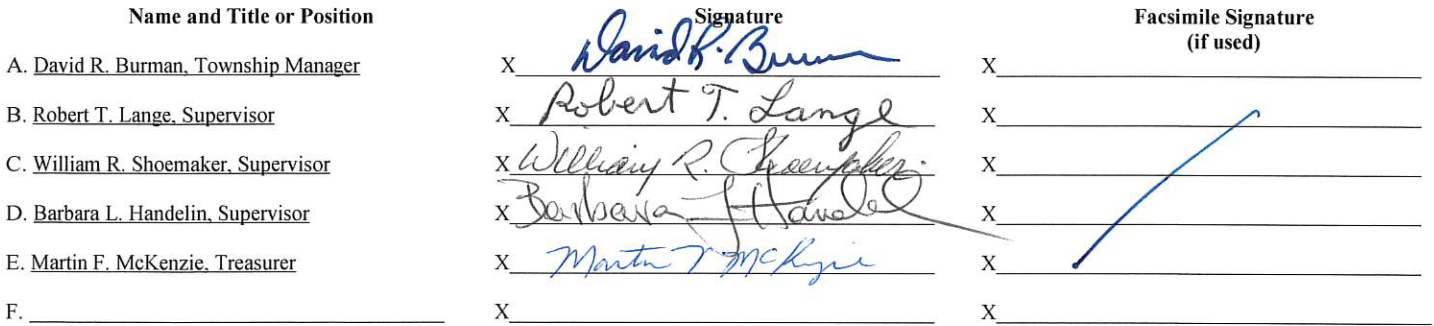 Name and Title or Position Signature Facsimile Signature
(if used)
A. David R. Burman, Township Manager X David R. Burman X
B. Robert T. Lange, Supervisor X Robert T. Lange X
C. William R. Shoemaker, Supervisor X William R. Shoemaker X
D. Barbara L. Handelin, Supervisor X Barbara L Handel X
E. Martin F. McKenzie, Treasurer X Martin F McKenzie X
F. X X